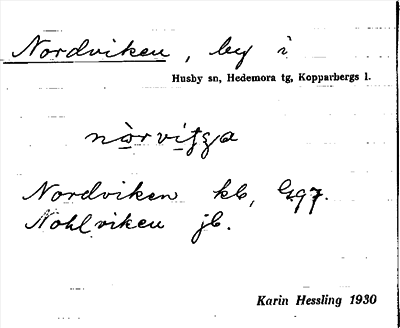 Nordviken, by i
Husby sn, Hedemora tg, Kopparbergs l.
Nordviken kb,
Nohlviken jb.
Karin Hessling 1930